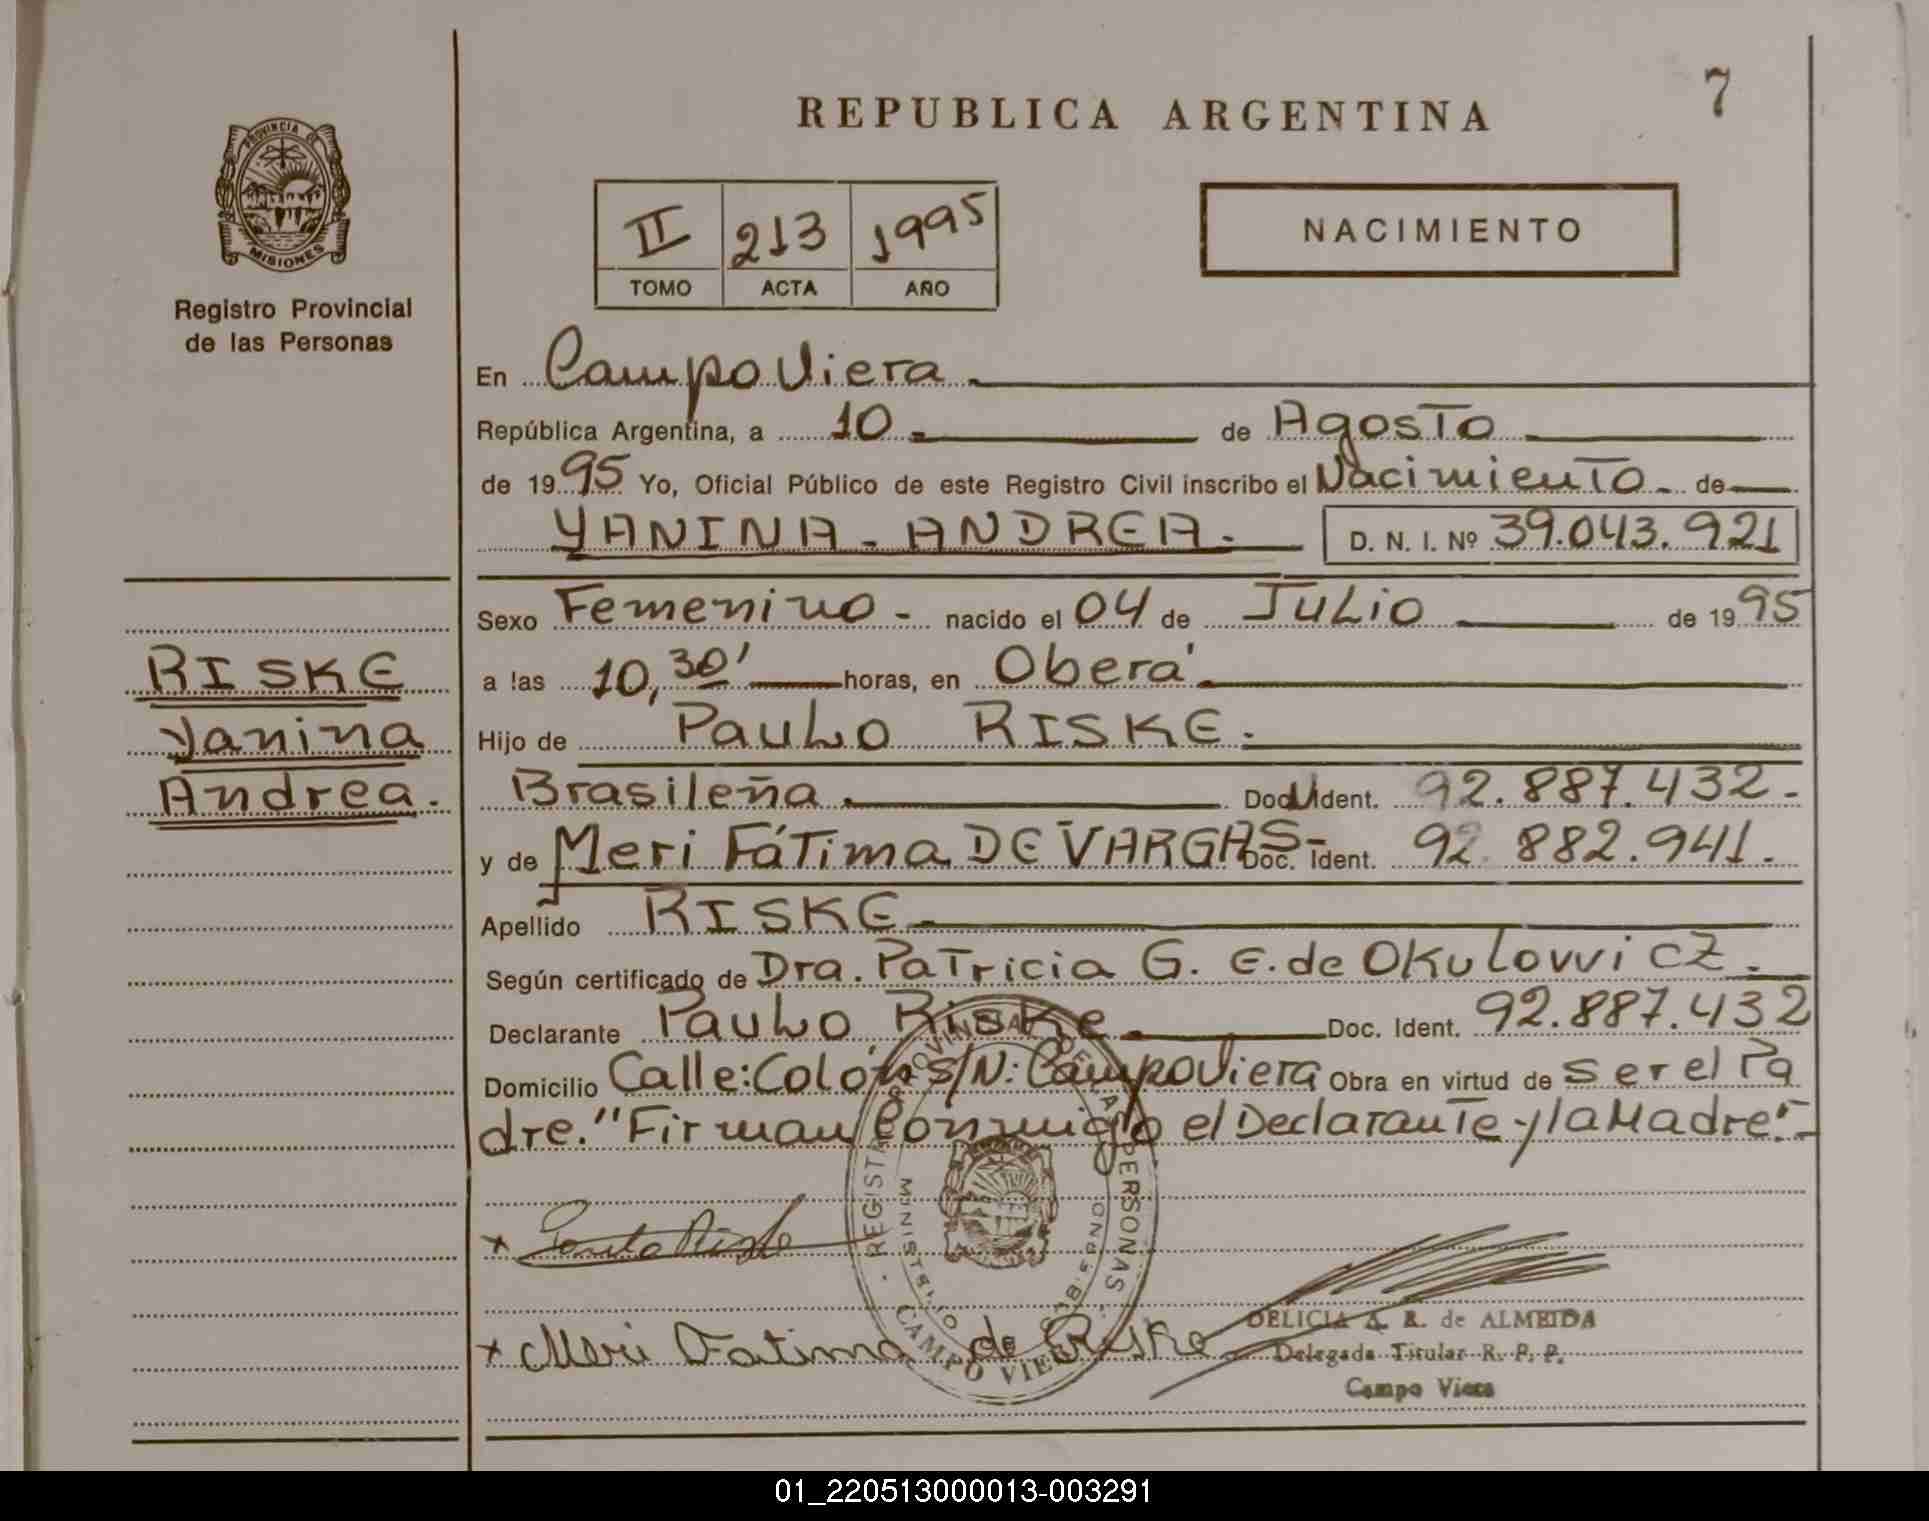 7
REPUBLICA ARGENTINA
PROVINCIA D
MISIONES
Registro Provincial
de las Personas
II 213 1995
TOMO ACTA AÑO
NACIMIENTO
En Campo Viera.
República Argentina, a 10. de Agosto
de 1995 Yo, Oficial Público de este Registro Civil inscribo el Nacimiento. de
YANINA. ANDREA. D. N. I. Nº 39.043.921
Sexo Femenino. nacido el 04 de Julio de 1995
a las 10,30' horas, en Oberá.
Hijo de Paulo RISKE.
Brasileña. Doc. Ident. 92.887.432.
y de Meri Fátima DE VARGAS- Doc. Ident. 92.882.941.
Apellido RISKE
Según certificado de Dra. Patricia G. E. de Okulovvicz.
Declarante Paulo Riske. Doc. Ident. 92.887.432
Domicilio Calle: Colón S/N: Campo Viera Obra en virtud de ser el Pa
dre. "Firman Conmigo el Declarante y la Madre".-
RISKE
Yanina
Andrea.
x Paulo Riske
x Meri Fatima de Riske
REGISTRO PROVINCIAL DE LAS PERSONAS
MINISTERIO
CAMPO VIERA
DELICIA A. R. de ALMEIDA
Delegada Titular R. P. P.
Campo Viera
01_220513000013-003291